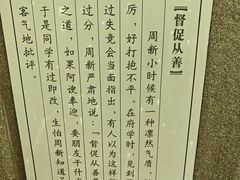 『督促从善』
周新小时候有一种凛然气质，
厉，好打抱不平。在府学时，见到
过失竟会当面指出，有人以为这样
过分，周新严肃地说：“督促从善”
之道，如果阿谀奉迎，要朋友干什
于是同学有过即改，生怕周新知道了
客气地批评。